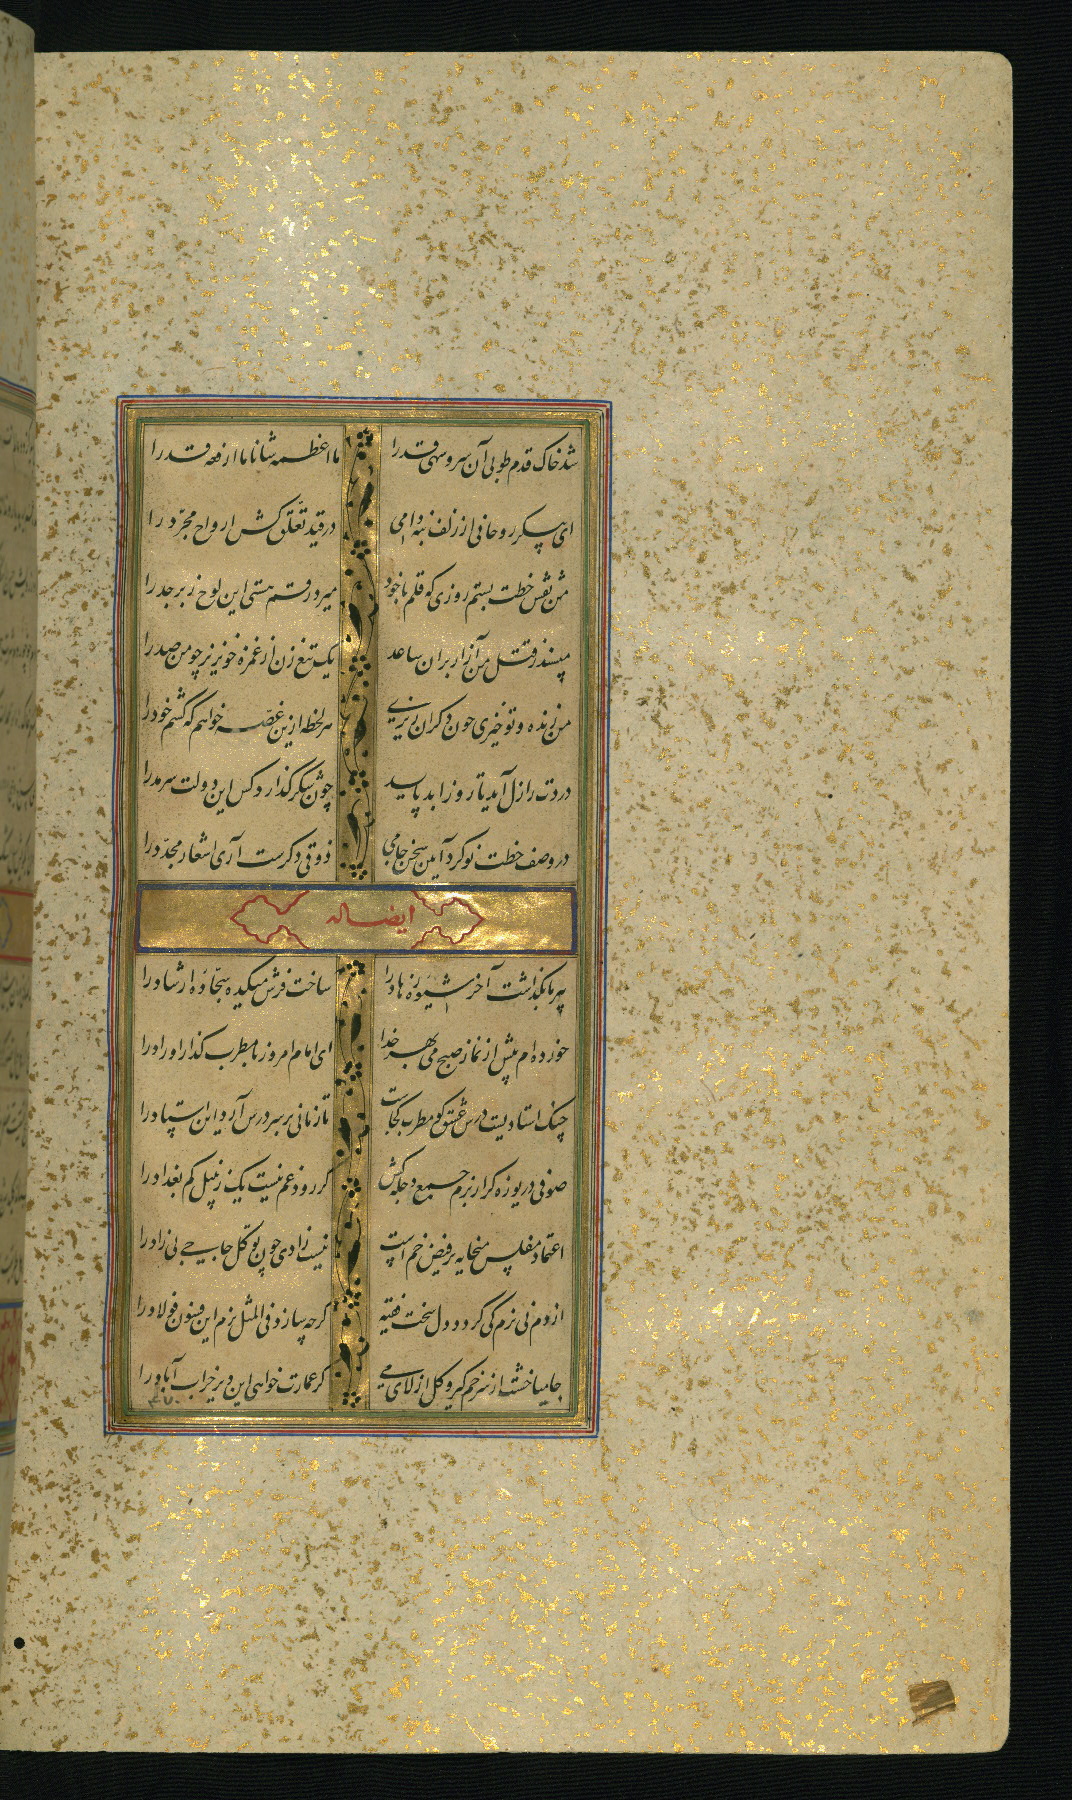 شد خاک قدم طوبی آن سرو سهی قدرا ما اعظمه شانا ما ارفعه قدرا
ای پیکر روحانی از زلف بنه دامی در قید تعلق کش ارواح مجرد را
من نقش خطت بستم روزی که قلم با خود میزد رقم هستی این لوح زبرجد را
مپسند ز قتل من آزار بران ساعد یک تیغ زن از غمزه خونریز چو من صد را
من زنده و تو خیزی خون دگران ریزی هر لحظه ازین غصه خواهم که کشم خود را
دردت ز ازل آید تا روز ابد پاید چون شکر گذارد کس این دولت سرمد را
در وصف خطت نو کرد آیین سخن جامی ذوقی دگرست آری اشعار مجدد را
ایضا له
پیر ما بگذاشت آخر شیوه زهاد را ساخت فرش میکده سجاده ارشاد را
خورده ام پیش از نماز صبح می بهر خدا ای امام امروز با مطرب گذار اوراد را
چنگ استادیست درس عشق گو مطرب کجاست تا زمانی بر سر درس آرد این استاد را
صوفی دریوزه گر از بزم جمع دجله کش گر رود غم نیست یک زنبیل کم بغداد را
اعتماد مفلس میخانه بر فیض خم است نیست زادی چون توکل حاجی بی زاد را
از دم نی نرم کی گردد دل سخت فقیه گرچه سازد فی المثل نرم این فسون فولاد را
جامیا خشت از سر خم گیر و گل از لای می گر عمارت خواهی این دیر خراب آباد را